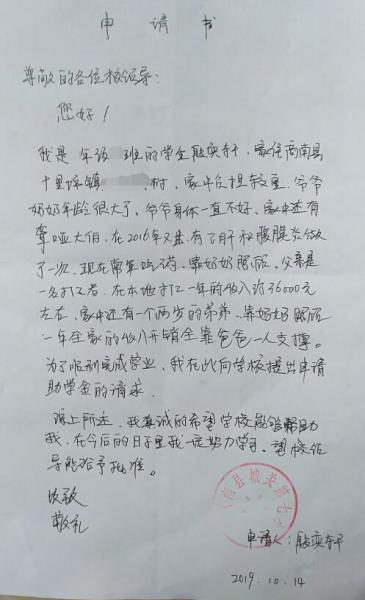 申请书
尊敬的各位校领导:
您好!
我是 年级 班的学生殷奕轩,家住商南县
十里坪镇 村,家中负担较重,爷爷
奶奶年龄很大了,爷爷身体一直不好,家中还有
聋哑大伯,在2016年又患有了肝和腹膜炎做
了一次,现在常年吃药,靠奶奶照顾。父亲是
一名打工者,在本地打工一年的收入约36000元
左右,家中还有一个两岁的弟弟,靠奶奶照顾
一年全家的收入开销全靠爸爸一人支撑。
为了顺利完成学业,我在此向学校提出申请
助学金的请求.
综上所述,我真诚的希望学校能够帮助
我,在今后的日子里我一定努力学习。望校领
导能给予批准。
此致
敬礼
县城关第七
申请人:殷奕轩
2019.10.14